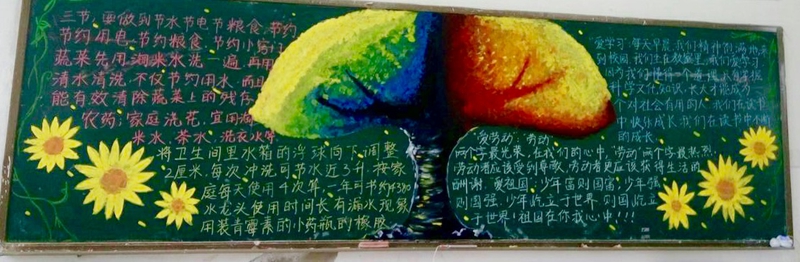 三节，要做到节水节电节粮食，节约
节约用电，节约粮食，节约小窍门
蔬菜先用淘米水洗一遍，再用
清水清洗，不仅节约用水，而且
能有效清除蔬菜上的残存
农药；家庭洗花，宜用淘
米水、茶水、洗衣水等
将卫生间里水箱的浮球向下调整
2厘米，每次冲洗可节水近3升，按家
庭每天使用4次算，一年可节约4380
水龙头使用时间长有漏水现象
用装青霉素的小药瓶的橡胶
"爱学习"，每天早晨，我们精神饱满地来
到校园，我们坐在教室里，我们爱学习
因为我们懂得一个道理，只有掌握
科学文化知识，长大才能成为一
个对社会有用的人，我们在读书
中快乐成长，我们在读书中不断
的成长。
"爱劳动"，劳动
两个字最光荣，在我们的心中，"劳动"两个字最热烈，
劳动者应该受到尊敬，劳动者更应该获得生活的
酬谢，爱祖国，少年富则国富，少年强
则国强，少年屹立于世界，则国屹立
于世界！祖国在你我心中！！！